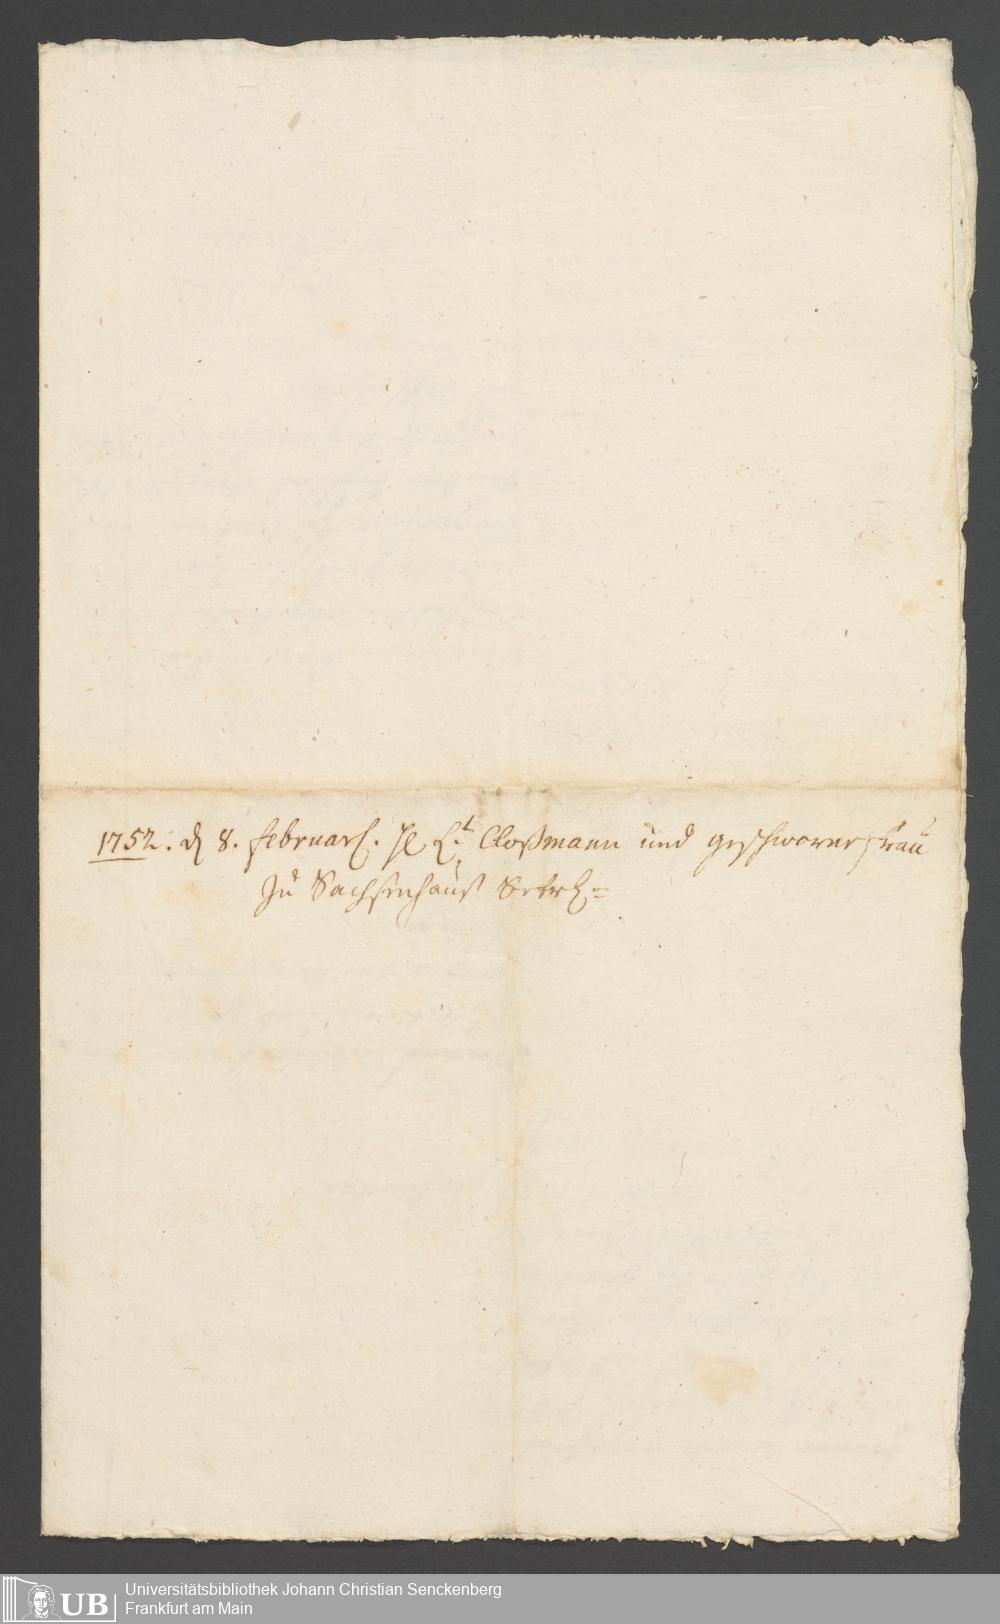 1752. d 8. Februar. H L.t Cloßmann und geschworne frau
zu Sachsenhauß betrf=
UB
Universitätsbibliothek Johann Christian Senckenberg
Frankfurt am Main